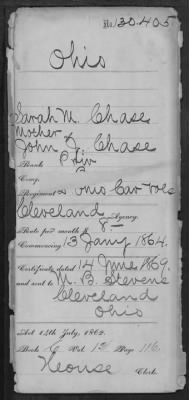 No. 30.405
Ohio
Sarah M. Chase
Mother of
John J. Chase
Rank Priv
Comp.
Regiment 2 Ohio Cav Vols
Cleveland Agency.
Rate per month $ 8—
Commencing 13 Jany 1864.
Certificate dated 14 June 1869.
and sent to M. B. Stevens
Cleveland
Ohio
Act 14th July, 1862.
Book C Vol. 12 Page 116.
Clerk.